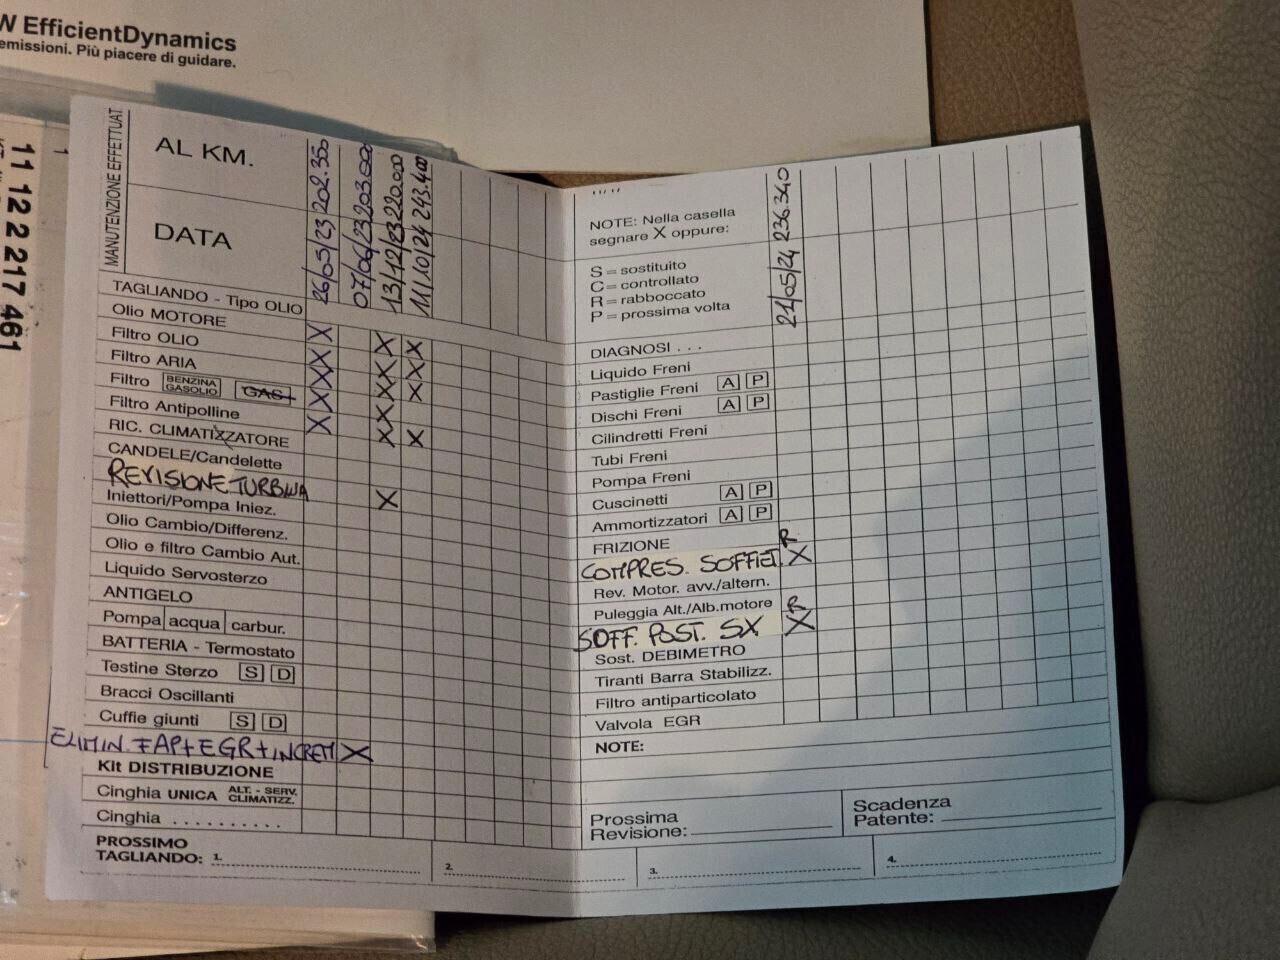 W EfficientDynamics
emissioni. Più piacere di guidare.
11 12 2 217 461
MANUTENZIONE EFFETTUAT
AL KM.
202.350
203.000
220.000
243.400
DATA
26/05/23
07/06/23
13/12/23
11/10/24
TAGLIANDO - Tipo OLIO
Olio MOTORE X
Filtro OLIO X X X
Filtro ARIA X X X
Filtro BENZINA GASOLIO GAS X X X
Filtro Antipolline X X
RIC. CLIMATIZZATORE X X
CANDELE/Candelette
REVISIONE TURBINA
Iniettori/Pompa Iniez. X
Olio Cambio/Differenz.
Olio e filtro Cambio Aut.
Liquido Servosterzo
ANTIGELO
Pompa acqua carbur.
BATTERIA - Termostato
Testine Sterzo S D
Bracci Oscillanti
Cuffie giunti S D
ELIMIN. FAP+EGR+INCREM X
Kit DISTRIBUZIONE
Cinghia UNICA ALT. - SERV. CLIMATIZZ.
Cinghia . . . . . . . . . .
PROSSIMO
TAGLIANDO: 1. 2.
NOTE: Nella casella
segnare X oppure:
236.340
S = sostituito
C = controllato
R = rabboccato
P = prossima volta
21/05/24
DIAGNOSI . . .
Liquido Freni
Pastiglie Freni A P
Dischi Freni A P
Cilindretti Freni
Tubi Freni
Pompa Freni
Cuscinetti A P
Ammortizzatori A P
FRIZIONE R
COMPRES. SOFFIET. X
Rev. Motor. avv./altern.
Puleggia Alt./Alb.motore R
SOFF. POST. SX X
Sost. DEBIMETRO
Tiranti Barra Stabilizz.
Filtro antiparticolato
Valvola EGR
NOTE:
Prossima
Revisione:
Scadenza
Patente:
3. 4.